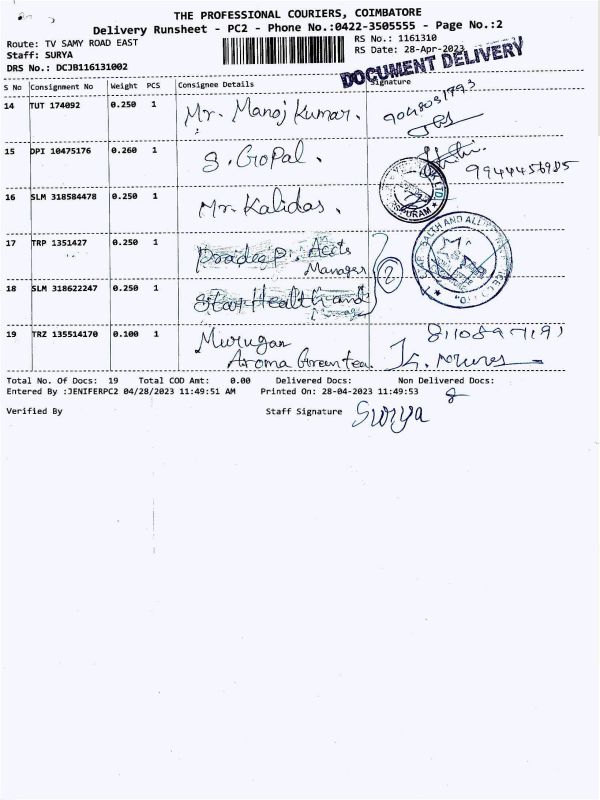 THE PROFESSIONAL COURIERS, COIMBATORE
Delivery Runsheet - PC2 - Phone No.:0422-3505555 - Page No.:2
Route: TV SAMY ROAD EAST
RS No.: 1161310
Staff: SURYA
RS Date: 28-Apr-2023
DRS No.: DCJB116131002
DOCUMENT DELIVERY
S No Consignment No Weight PCS Consignee Details Signature
14 TUT 174092 0.250 1 Mr. Manoj Kumar. 9048031793
15 DPI 10475176 0.260 1 S. Gopal. 9944456985
16 SLM 318584478 0.250 1 Mr. Kalidas.
17 TRP 1351427 0.250 1 Pradeep. Accts
Manager
2
18 SLM 318622247 0.250 1 Star Health and
19 TRZ 135514170 0.100 1 Murugan 8110897193
Aroma Greentea.
Total No. Of Docs: 19 Total COD Amt: 0.00 Delivered Docs: Non Delivered Docs:
Entered By :JENIFERPC2 04/28/2023 11:49:51 AM Printed On: 28-04-2023 11:49:53
Verified By Staff Signature Surya